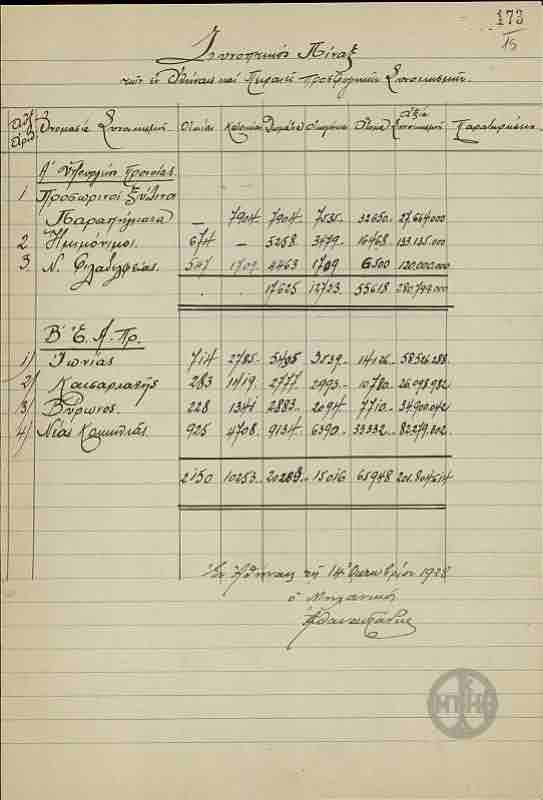 173
15
Συνοπτικός Πίναξ
των εν Αθήναις και Πειραιεί Προσφυγικών Συνοικισμών.
Αύξ Αριθ Ονομασία Συνοικισμού Οικίαι Δωμάτια Άτομα Αξία Συνοικισμού Παρατηρήσεις
Α' Υπουργείον Προνοίας
1 Προσωρινοί Ξύλινα
Παραπήγματα — 7904 7904 7535 32650 27.664.000
2 Ημιμόνιμοι 674 — 5258 3479 16468 133.135.000
3. Ν. Φιλαδελφείας 547 1709 4463 1709 6500 120.000.000
17625 12723 55618 280.799.000
Β' Ε. Α. Πρ.
1) Ιωνίας 714 2785 5495 3539 14126 58.526.288
2) Καισαριανής 283 1419 2777 2993 10780 26.098.982
3) Βύρωνος 228 1341 2883 2094 7710 34.900.042
4) Νέας Κοκκινιάς 925 4708 9134 6390 33332 82.279.202
2150 10253 20289 15016 65948 201.804.514
Εν Αθήναις τη 14 Οκτωβρίου 1928
ο Μηχανικός